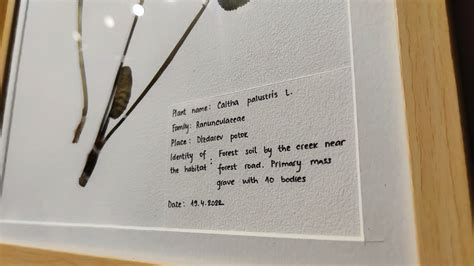 Plant name: Caltha palustris L.
Family: Ranunculaceae
Place: Dizdarev potok
Identity of : Forest soil by the creek near
the habitat forest road. Primary mass
grave with 10 bodies
Date: 19.4.2022